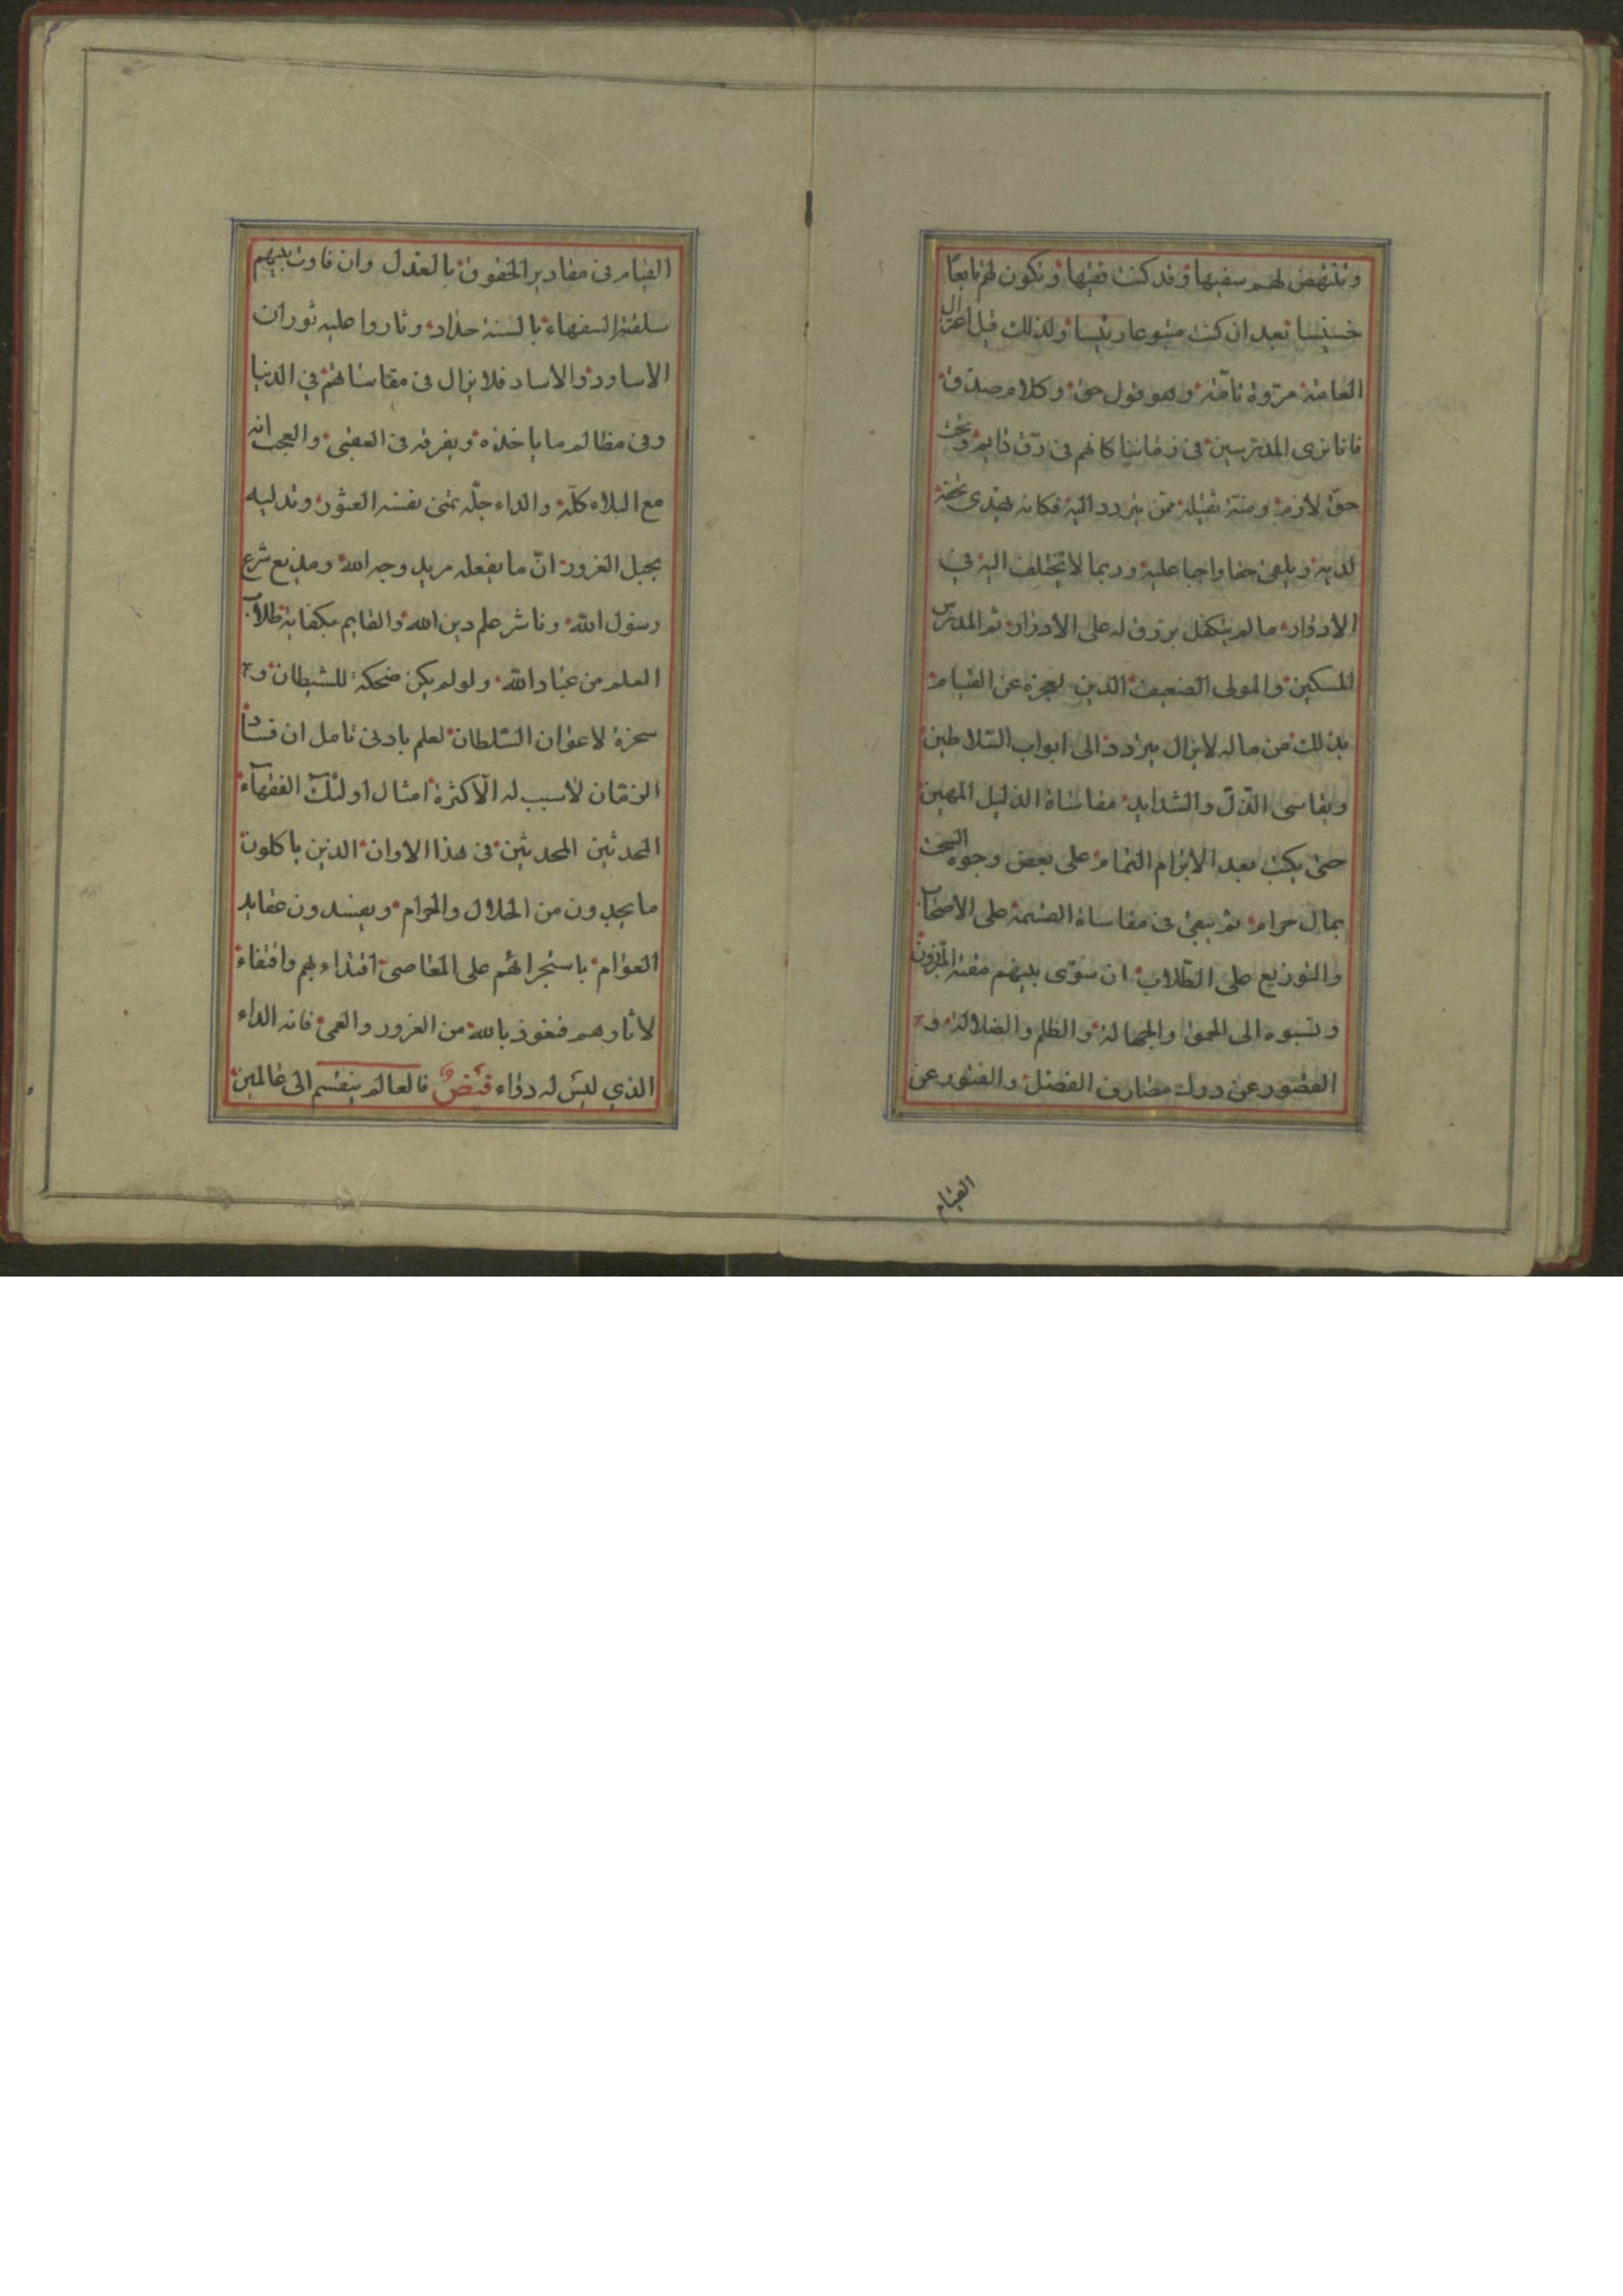 وتنتهض لهم سفيها وقد كنت فقيها وتكون لهم تابعا
خسيسا بعد ان كنت متبوعا رئيسا ولذلك قيل اعتزال
العامة مروة تامة وهو قول حق وكلام صدق
فانا نرى المدرسين في زماننا كانهم في رق دايم وتحت
حق لازم ومنة ثقيلة ممن يتردد اليه فكانه يهدي تحفة
لديه ويلقى حقا واجبا عليه وربما لا يختلف اليه في
الادوار ما لم يتكفل برزق له على الادرار ثم المدرس
المسكين والمولى الضعيف الدين لعجزه عن القيام
بذلك من ماله لا يزال يتردد الى ابواب السلاطين
ويقاسى الذل والشدايد مقاساة الذليل المهين
حتى يكتب بعد الابرام التمام على بعض وجوه السحت
بمال حرام ثم يبقى في مقاساة القسمة على الاصحاب
والتوزيع على الطلاب ان سوى بينهم مقته المبرزون
ونسبوه الى الحمق والجهالة والظلم والضلالة و
القصور عن درك مصارف الفضل والفتور عن
القيام
القيام في مقادير الحقوق بالعدل وان فاوت بينهم
سلقته السفهاء بالسنة حداد وثاروا عليه ثوران
الاساود والاساد فلا يزال في مقاساتهم في الدنيا
وفي مظالم ما ياخذه ويفرقه في العقبى والعجب انه
مع البلاء كله والداء جله تمنى نفسه العثور وتدليه
بحبل الغرور ان ما يفعله مريد وجه الله ومذيع شرع
رسول الله وناشر علم دين الله والقايم بكفاية طلاب
العلم من عباد الله ولو لم يكن ضحكة للشيطان و
سخرة لاعوان السلطان لعلم بادنى تامل ان فساد
الزمان لا سبب له الا كثرة امثال اولئك الفقهاء
المحدثين المحدثين في هذا الاوان الذين ياكلون
ما يجدون من الحلال والحرام ويفسدون عقايد
العوام باستجرائهم على المعاصى اقتداء بهم واقتفاء
لاثارهم فنعوذ بالله من الغرور والعمى فانه الداء
الذي ليس له دواء فيض فالعالم ينقسم الى عالمين